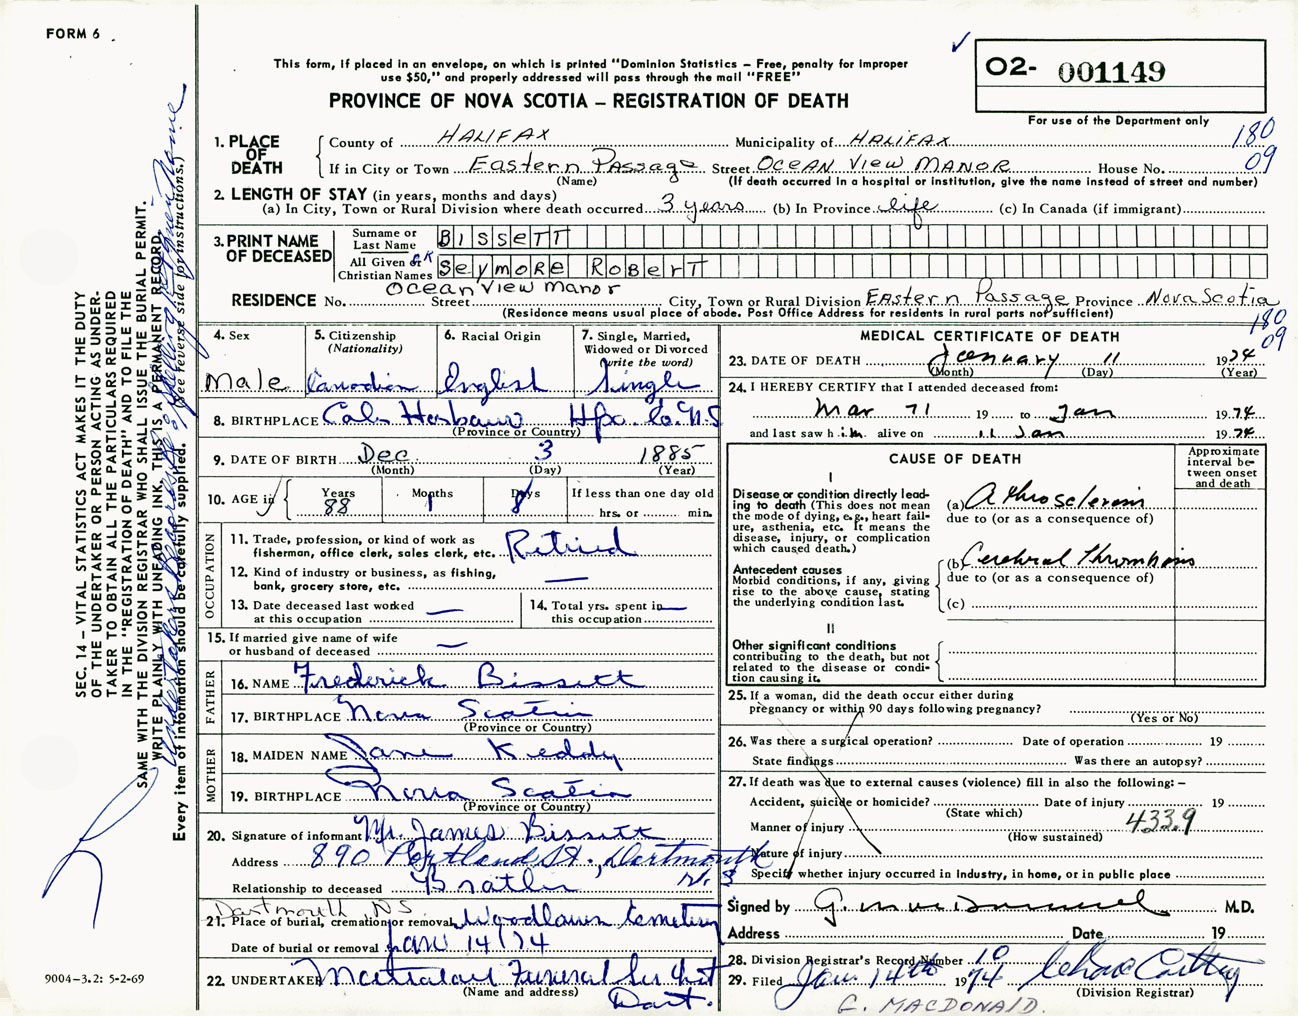 FORM 6
This form, if placed in an envelope, on which is printed "Dominion Statistics – Free, penalty for improper
use $50," and properly addressed will pass through the mail "FREE"
PROVINCE OF NOVA SCOTIA – REGISTRATION OF DEATH
O2- 001149
For use of the Department only
180
09
1. PLACE OF DEATH
County of HALIFAX Municipality of HALIFAX
If in City or Town Eastern Passage Street OCEAN VIEW MANOR House No.
(Name) (If death occurred in a hospital or institution, give the name instead of street and number)
2. LENGTH OF STAY (in years, months and days)
(a) In City, Town or Rural Division where death occurred 3 years (b) In Province life (c) In Canada (if immigrant)
3. PRINT NAME OF DECEASED
Surname or Last Name BISSETT
All Given or Christian Names Seymore Robert
RESIDENCE No. Ocean View Manor Street City, Town or Rural Division Eastern Passage Province Nova Scotia
(Residence means usual place of abode. Post Office Address for residents in rural parts not sufficient)
180
09
4. Sex Male
5. Citizenship (Nationality) Canadian
6. Racial Origin English
7. Single, Married, Widowed or Divorced (write the word) Single
8. BIRTHPLACE Cole Harbour Hfx. Co. N.S
(Province or Country)
9. DATE OF BIRTH Dec 3 1885
(Month) (Day) (Year)
10. AGE in Years 88 Months 1 Days 8 If less than one day old hrs. or min.
OCCUPATION
11. Trade, profession, or kind of work as fisherman, office clerk, sales clerk, etc. Retired
12. Kind of industry or business, as fishing, bank, grocery store, etc. —
13. Date deceased last worked at this occupation —
14. Total yrs. spent in this occupation —
15. If married give name of wife or husband of deceased —
FATHER
16. NAME Frederick Bissett
17. BIRTHPLACE Nova Scotia
(Province or Country)
MOTHER
18. MAIDEN NAME Jane Keddy
19. BIRTHPLACE Nova Scotia
(Province or Country)
20. Signature of informant Mr. James Bissett
Address 890 Portland St., Dartmouth N.S
Relationship to deceased Brother
Dartmouth, N.S.
21. Place of burial, cremation or removal Woodlawn Cemetery
Date of burial or removal Jan 14/74
22. UNDERTAKER Funeral
Dart.
(Name and address)
MEDICAL CERTIFICATE OF DEATH
23. DATE OF DEATH January 11 1974
(Month) (Day) (Year)
24. I HEREBY CERTIFY that I attended deceased from:
Mar 71 19 to Jan 1974
and last saw him alive on 11 Jan 1974
CAUSE OF DEATH
Approximate interval between onset and death
I
Disease or condition directly leading to death (This does not
the mode of dying, e.g., heart failure, asthenia, etc. It means the
disease, injury, or complication
which caused death.)
(a)
due to (or as a consequence of)
Antecedent causes
Morbid conditions, if any, giving
rise to the above cause, stating
the underlying condition last.
(b) Cerebral Thrombosis
due to (or as a consequence of)
(c)
II
Other significant conditions
contributing to the death, but not
related to the disease or condition causing it.
25. If a woman, did the death occur either during
pregnancy or within 90 days following pregnancy?
(Yes or No)
26. Was there a surgical operation? Date of operation 19
State findings Was there an autopsy?
27. If death was due to external causes (violence) fill in also the following: –
Accident, suicide or homicide? Date of injury 19
(State which)
Manner of injury 433.9
(How sustained)
Nature of injury
Specify whether injury occurred in industry, in home, or in public place
Signed by M.D.
Address Date 19
28. Division Registrar's Record Number 10
29. Filed Jan. 14th 1974
(Division Registrar)
G. MACDONALD.
SEC. 14 – VITAL STATISTICS ACT MAKES IT THE DUTY
OF THE UNDERTAKER OR PERSON ACTING AS UNDERTAKER TO OBTAIN ALL THE PARTICULARS REQUIRED
IN THE "REGISTRATION OF DEATH" AND TO FILE THE
SAME WITH THE DIVISION REGISTRAR WHO SHALL ISSUE THE BURIAL PERMIT.
WRITE PLAINLY WITH UNFADING INK. THIS IS A PERMANENT RECORD.
Every item of information should be carefully supplied. (See reverse side for instructions.)
9004–3.2: 5-2-69